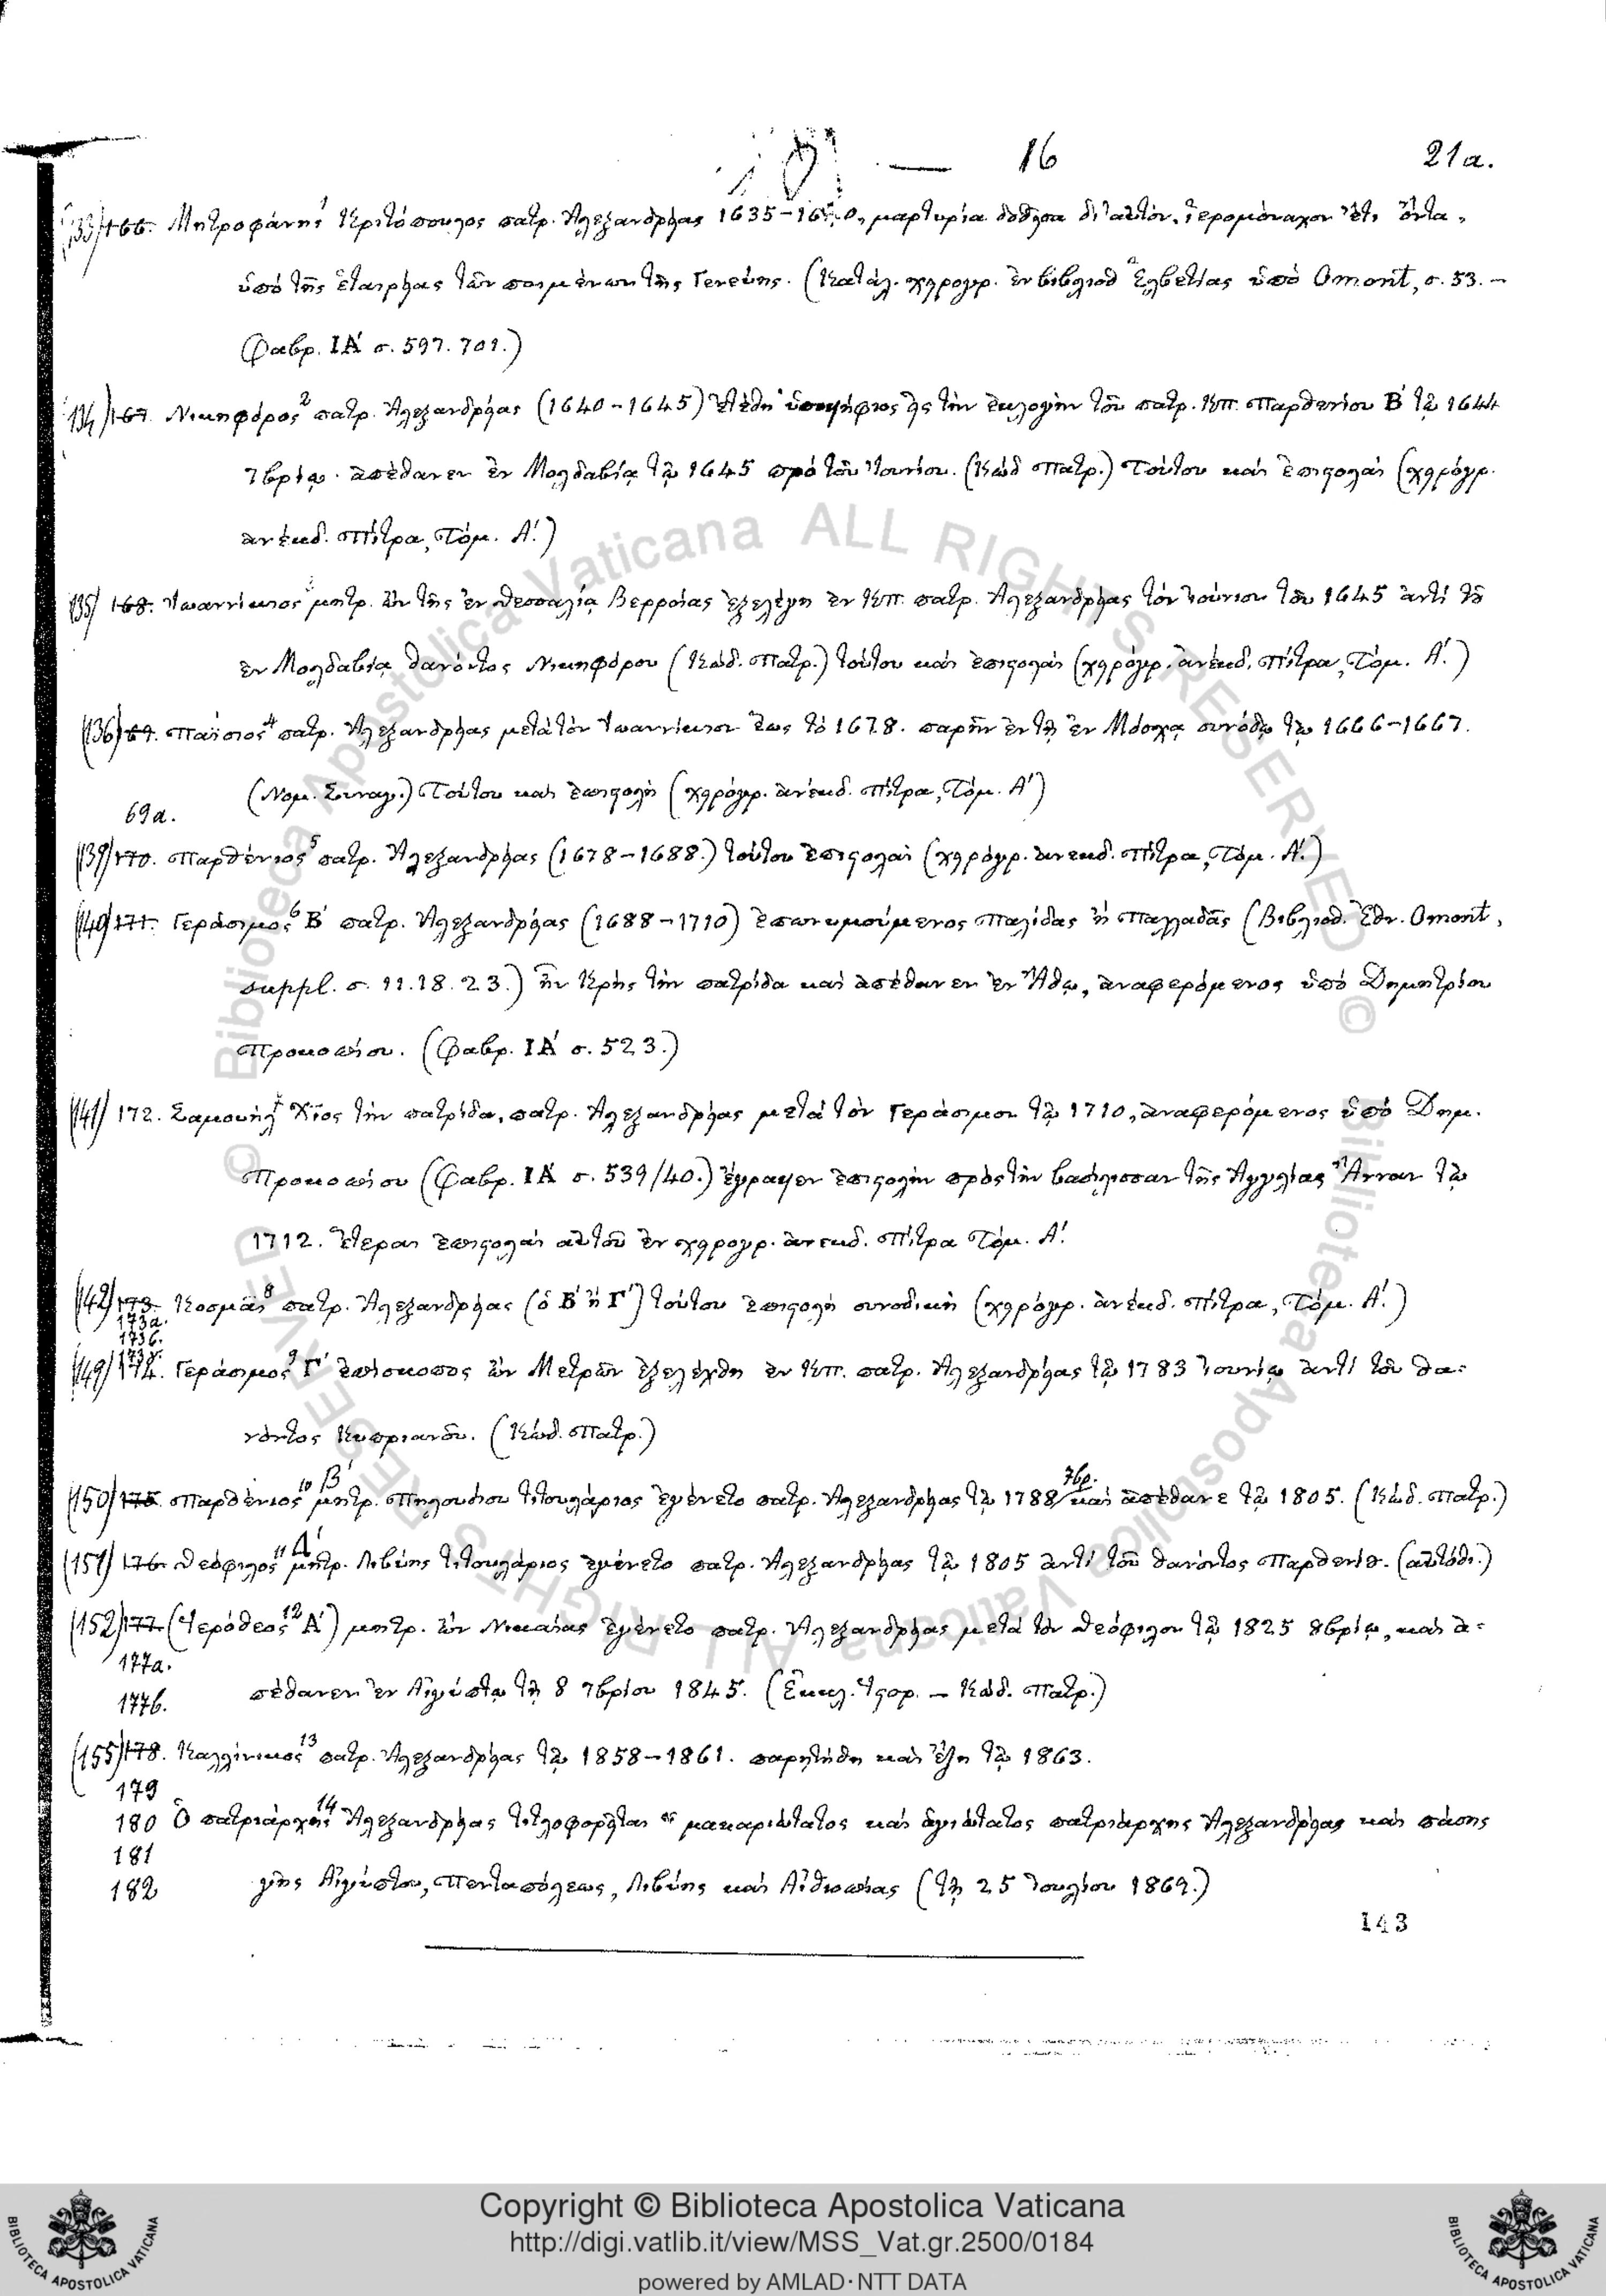 16 21α.
133) 166. Μητροφάνης¹ Κριτόπουλος πατρ. Ἀλεξανδρείας 1635-16 0, μαρτυρία δοθεῖσα δι' αὐτόν, ἱερομόναχον ἔτι ὄντα,
ὑπό τῆς ἑταιρείας τῶν ποιμένων τῆς Γενεύης. (Κατάλ. χειρογρ. ἐν βιβλιοθ Ἑλβετίας ὑπό Omont, σ. 53. -
Φαβρ. ΙΑ' σ. 597. 701.)
134) 167. Νικηφόρος² πατρ. Ἀλεξανδρείας (1640-1645) ἐτέθη ὑποψήφιος εἰς τήν ἐκλογήν τοῦ πατρ. Κπ. Παρθενίου Β' τῷ 1644
7βρίῳ. ἀπέθανεν ἐν Μολδαβίᾳ τῷ 1645 πρό τοῦ Ἰουνίου. (Κώδ Πατρ.) Τούτου καί ἐπιστολαί (χειρόγρ.
ἀνέκδ. Πίτρα, Τόμ. Α'.)
135) 168. Ἰωαννίκιος³ μητρ. ὤν τῆς ἐν Θεσσαλίᾳ Βερροίας ἐξελέγη ἐν Κπ. πατρ. Ἀλεξανδρείας τόν Ἰούνιον τοῦ 1645 ἀντί τοῦ
ἐν Μολδαβίᾳ θανόντος Νικηφόρου (Κώδ. Πατρ.) τούτου καί ἐπιστολαί (χειρόγρ. ἀνέκδ. Πίτρα, Τόμ. Α'.)
(136) 69. Παΐσιος⁴ πατρ. Ἀλεξανδρείας μετά τόν Ἰωαννίκιον ἕως τό 1678. παρῆν ἐν τῇ ἐν Μόσχᾳ συνόδῳ τῷ 1666-1667.
(Νομ. Συναγ.) Τούτου καί ἐπιστολή (χειρόγρ. ἀνέκδ. Πίτρα, Τόμ. Α')
69α.
(139) 170. Παρθένιος⁵ πατρ. Ἀλεξανδρείας (1678-1688.) τούτου ἐπιστολαί (χειρόγρ. ἀνέκδ. Πίτρα, Τόμ. Α'.)
(140) 171. Γεράσιμος⁶ Β' πατρ. Ἀλεξανδρείας (1688-1710) ἐπονυμούμενος Παλίδας ἤ Παλλαδᾶς (Βιβλιοθ. Ἐθν. Omont,
suppl. σ. 11. 18. 23.) ἦν Κρής τήν πατρίδα καί ἀπέθανεν ἐν Ἄθῳ, ἀναφερόμενος ὑπό Δημητρίου
Προκοπίου. (Φαβρ. ΙΑ' σ. 523.)
(141) 172. Σαμουήλ⁷ Χῖος τήν πατρίδα, πατρ. Ἀλεξανδρείας μετά τόν Γεράσιμον τῷ 1710, ἀναφερόμενος ὑπό Δημ.
Προκοπίου (Φαβρ. ΙΑ' σ. 539/40.) ἔγραψεν ἐπιστολήν πρός τήν βασίλισσαν τῆς Ἀγγλίας Ἄνναν τῷ
1712. ἕτεραι ἐπιστολαί αὐτοῦ ἐν χειρογρ. ἀνέκδ. Πίτρα Τόμ. Α'.
(142) 173. Κοσμᾶς⁸ πατρ. Ἀλεξανδρείας (ὁ Β' ἤ Γ') τούτου ἐπιστολή συνοδική (χειρόγρ. ἀνέκδ. Πίτρα, Τόμ. Α'.)
173α.
173β.
173γ.
(149) 174. Γεράσιμος⁹ Γ' ἐπίσκοπος ὤν Μετρῶν ἐξελέχθη ἐν Κπ. πατρ. Ἀλεξανδρείας τῷ 1783 Ἰουνίῳ ἀντί τοῦ θα-
νόντος Κυπριανοῦ. (Κώδ. Πατρ.)
(150) 175. Παρθένιος¹⁰ Β' μητρ. Πηλουσίου τιτουλάριος ἐγένετο πατρ. Ἀλεξανδρείας τῷ 1788 7βρ. καί ἀπέθανε τῷ 1805. (Κώδ. Πατρ.)
(151) 176. Θεόφιλος¹¹ Δ' μητρ. Λιβύης τιτουλάριος ἐγένετο πατρ. Ἀλεξανδρείας τῷ 1805 ἀντί τοῦ θανόντος Παρθενίου. (αὐτόθι.)
(152) 177. (Ἱερόθεος¹² Α') μητρ. ὤν Νικαίας ἐγένετο πατρ. Ἀλεξανδρείας μετά τόν Θεόφιλον τῷ 1825 8βρίῳ, καί ἀ-
177α.
πέθανεν ἐν Αἰγύπτῳ τῇ 8 7βρίου 1845. (Ἐκκλ. Ἱστορ. - Κώδ. Πατρ.)
177β.
(155) 178. Καλλίνικος¹³ πατρ. Ἀλεξανδρείας τῷ 1858-1861. παρῃτήθη καί ἔζη τῷ 1863.
179
180 Ὁ πατριάρχης¹⁴ Ἀλεξανδρείας τιτλοφορεῖται " μακαριώτατος καί ἁγιώτατος πατριάρχης Ἀλεξανδρείας καί πάσης
181
γῆς Αἰγύπτου, Πενταπόλεως, Λιβύης καί Αἰθιοπίας (τῇ 25 Ἰουλίου 1869.)
182
143
© Biblioteca Apostolica Vaticana ALL RIGHTS RESERVED
© Biblioteca Apostolica Vaticana ALL RIGHTS RESERVED
Copyright © Biblioteca Apostolica Vaticana
http://digi.vatlib.it/view/MSS_Vat.gr.2500/0184
powered by AMLAD·NTT DATA
BIBLIOTECA APOSTOLICA VATICANA
BIBLIOTECA APOSTOLICA VATICANA